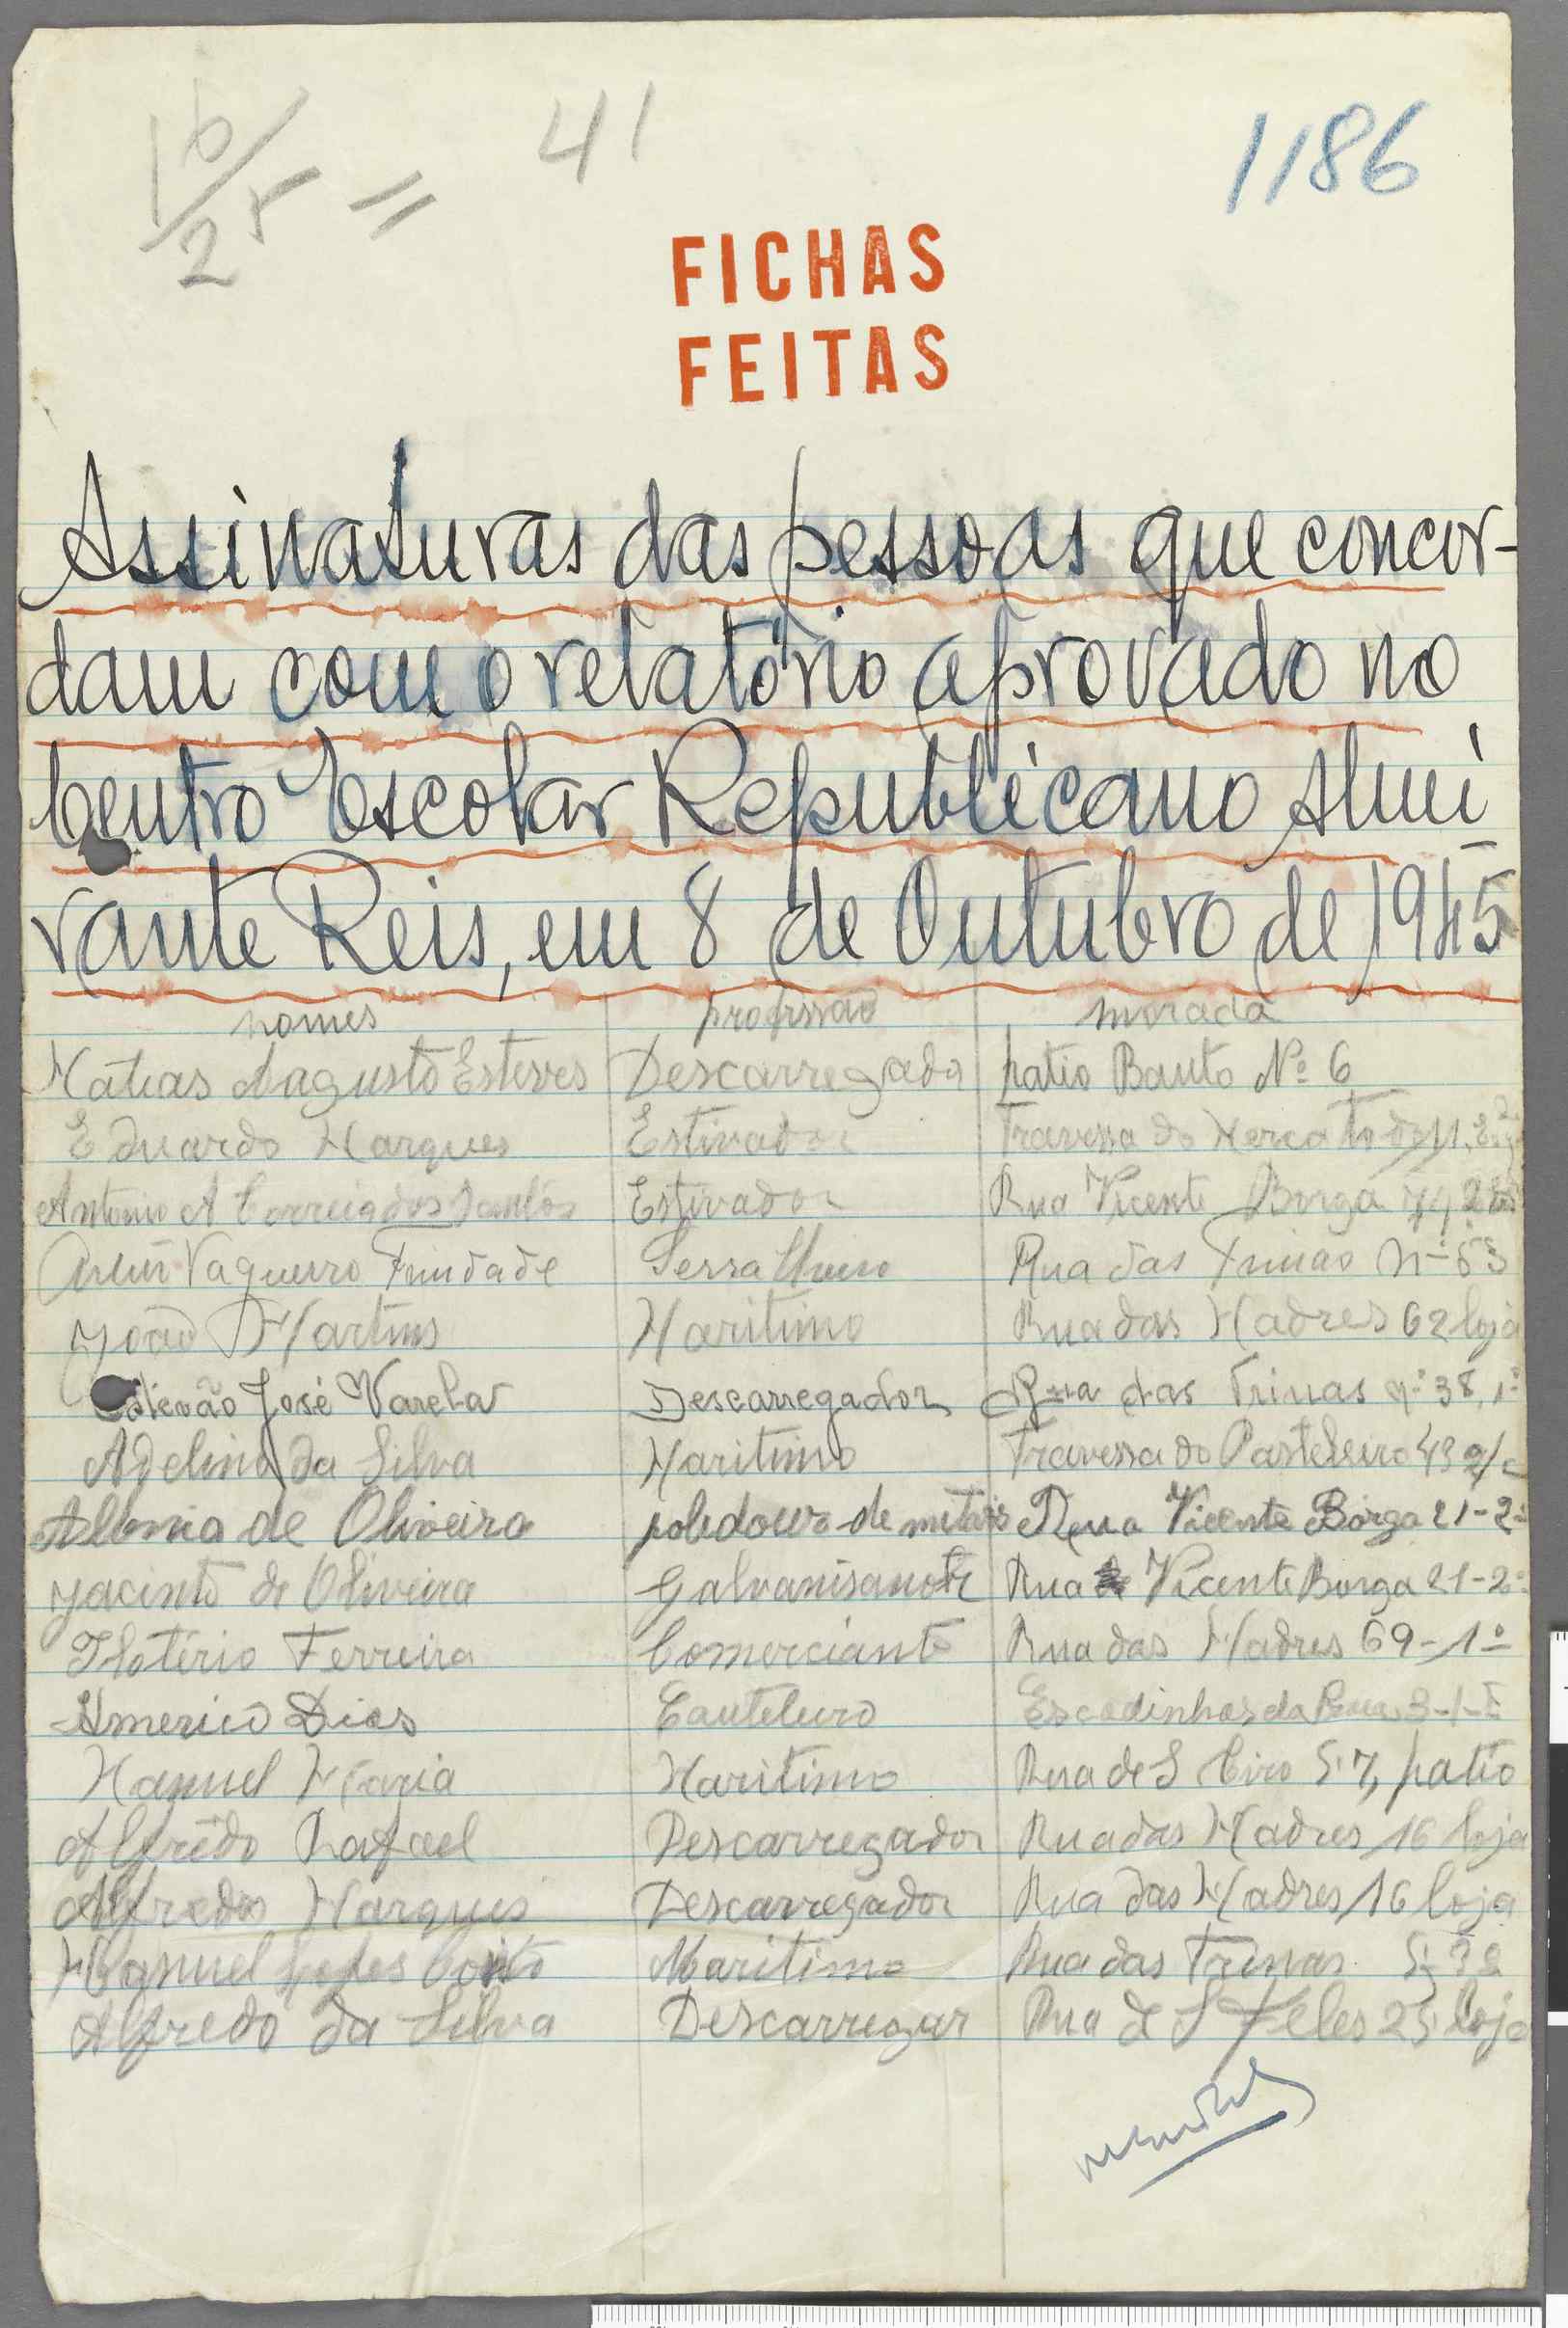 16/25 = 41 1186
FICHAS
FEITAS
Assinaturas das pessoas que concor-
dam com o relatório aprovado no
Centro Escolar Republicano Almi
rante Reis, em 8 de Outubro de 1945
nomes profissão morada
Matias Augusto Esteves Descarregador patio Bauto Nº 6
Eduardo Marques Estivador Travessa do
Antonio A Correia dos Santos Estivador Rua Vicente Borga
Vaqueiro Trindade Serralheiro Rua das Trinas nº
João Martins Maritimo Rua das Madres 62 loja
Estevão José Varela Descarregador Rua das Trinas nº 38, 1º
Adelino da Silva Maritimo Travessa do Pasteleiro 43
de Oliveira de Rua Vicente Borga 21-2º
Jacinto de Oliveira Rua Vicente Borga 21-2º
Ferreira Comerciante Rua das Madres 69-1º
Americo Dias Cauteleiro Escadinhas da
Manuel Maria Maritimo Rua de S Ciro 57, patio
Alfrêdo Rafael Descarregador Rua das Madres 16 loja
Alfredo Marques Descarregador Rua das Madres 16 loja
Manuel Lopes Maritimo Rua das Trinas
Alfredo da Silva Descarregar Rua de S Feles 25 loja